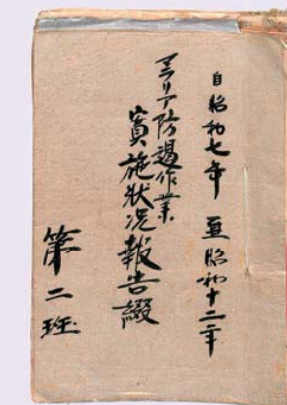 自昭和七年 至昭和十二年
マラリア防遏作業
實施狀況報告綴
第二班